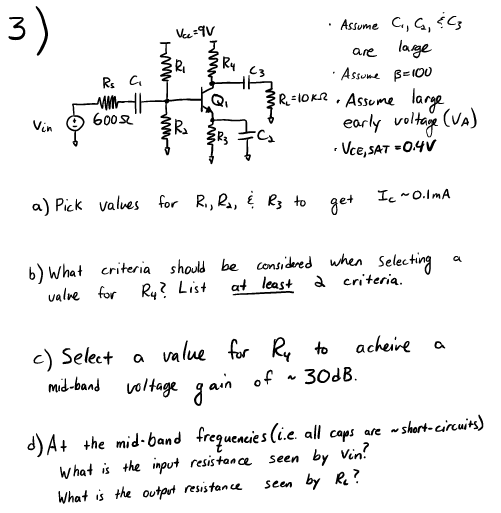 3)
Vcc=9V
R₁
R₄
C3
Rs
C₁
600Ω
Q₁
RL=10KΩ
Vin
R₂
R₃
C₂
· Assume C₁, C₂, & C3
are large
· Assume β=100
· Assume large
early voltage (VA)
· VCE,SAT = 0.4V
a) Pick values for R₁, R₂, & R3 to get Ic ~ 0.1mA
b) What criteria should be considered when selecting a
value for R₄? List at least 2 criteria.
c) Select a value for R₄ to acheive a
mid-band voltage gain of ~ 30dB.
d) At the mid-band frequencies (i.e. all caps are ~short-circuits)
What is the input resistance seen by Vin?
What is the output resistance seen by RL?